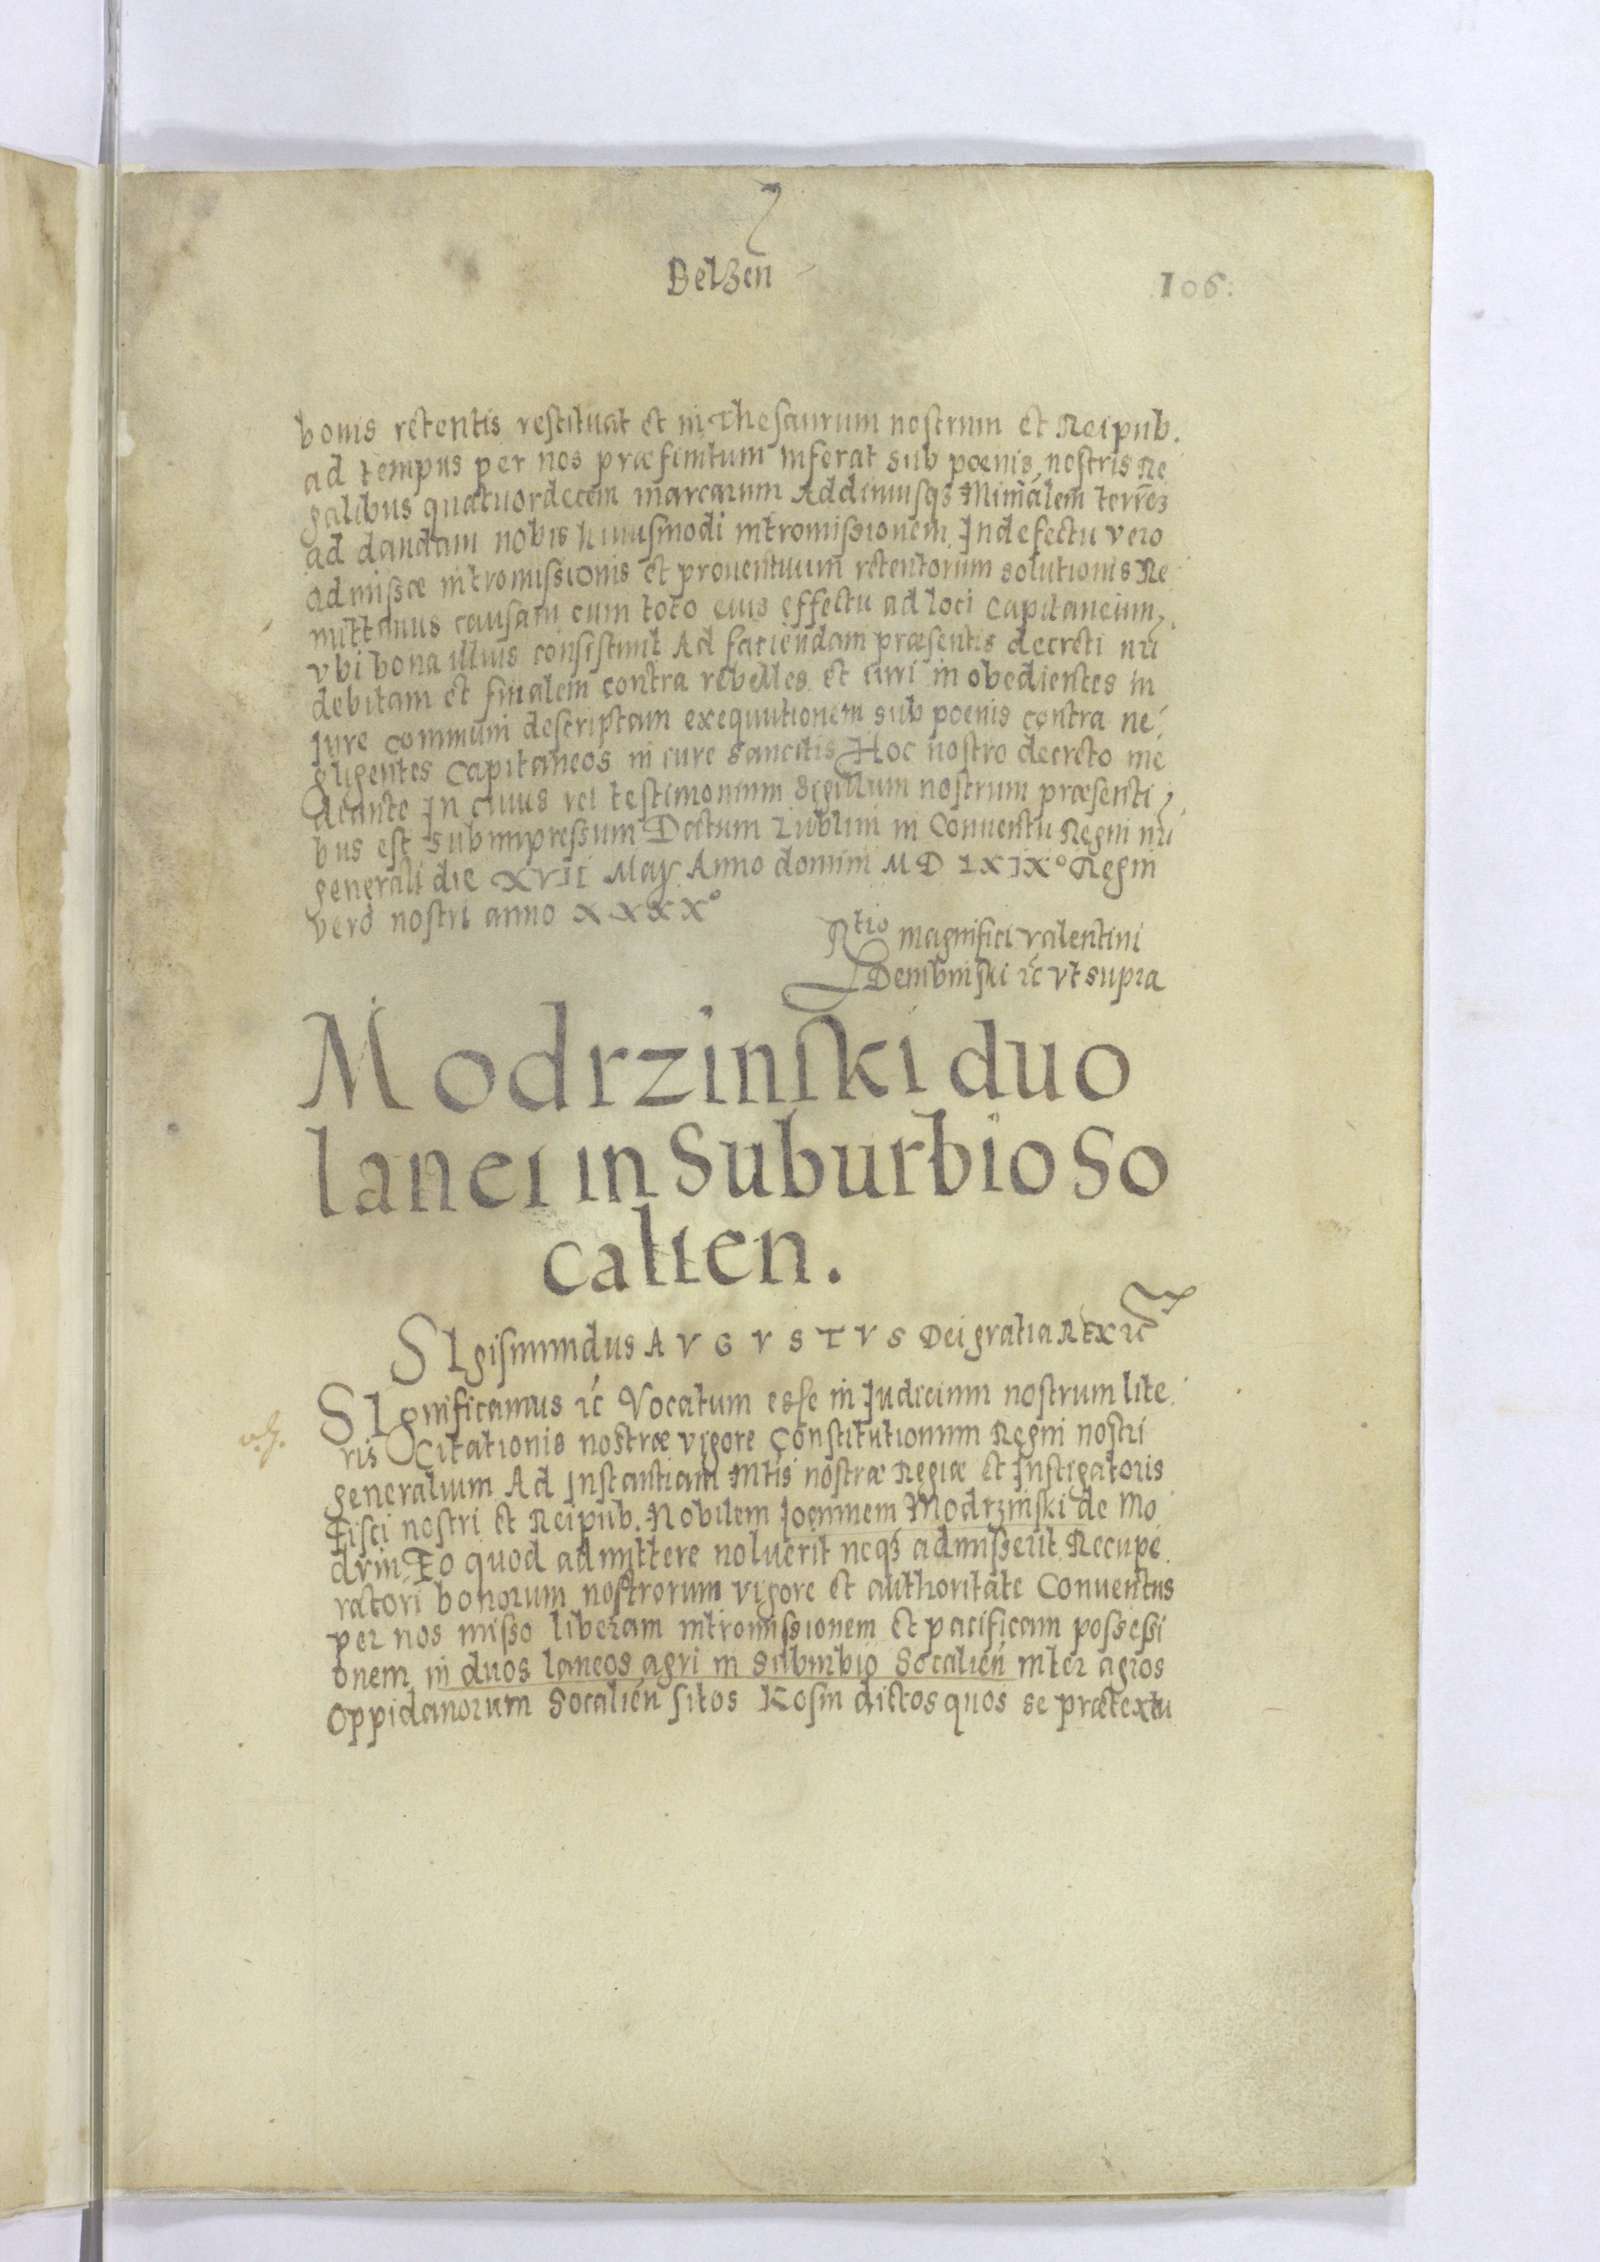 Belzen
106.
bonis retentis restituat et in Thesaurum nostrum et Reipub.
ad tempus per nos præfinitum inferat sub poenis nostris Re
galibus quatuordecem marcarum Addimusqz Minrālem terrez
ad dandam nobis huiusmodi intromissionem Indefectu vero
admissæ intromissionis et prouentuum retentorum solutionis Re
mittimus causam cum toto eius effectu ad loci Capitaneium
vbi bona illius consistunt Ad faciendam præsentis decreti nri
debitam et finalem contra rebelles et iuri in obedientes in
Jure communi descriptam exequutionem sub poenis contra ne
gligentes Capitaneos in iure sancitis Hoc nostro decreto me
diante In cuius rei testimonium sigillum nostrum præsenti
bus est subimpressum Datum Lublini in Conuentu Regni nri
generali die XVII May Anno domini M D LXIX° Regni
vero nostri anno XXXX°
Rtio magnifici valentini
Dembinski ic vt supra
Modrzinski duo
lanei in Suburbio So
calien.
SIgismundus AVGVSTVS Dei gratia REX ic
SIgnificamus ic Vocatum esse in Judicium nostrum lite
ris Citationis nostræ vigore Constitutionum Regni nostri
generalium Ad Instantiam Mtis nostræ Regiæ et Instigatoris
Fisci nostri et Reipub. Nobilem Joannem Modrzinski de Mo
drin Eo quod admittere noluerit neqz admisserit Recupe
ratori bonorum nostrorum vigore et authoritate Conuentus
per nos misso liberam intromissionem et pacificam possessi
onem in duos laneos agri in suburbio Socalien inter agros
Oppidanorum Socalien sitos Kosin dictos quos se prætextu